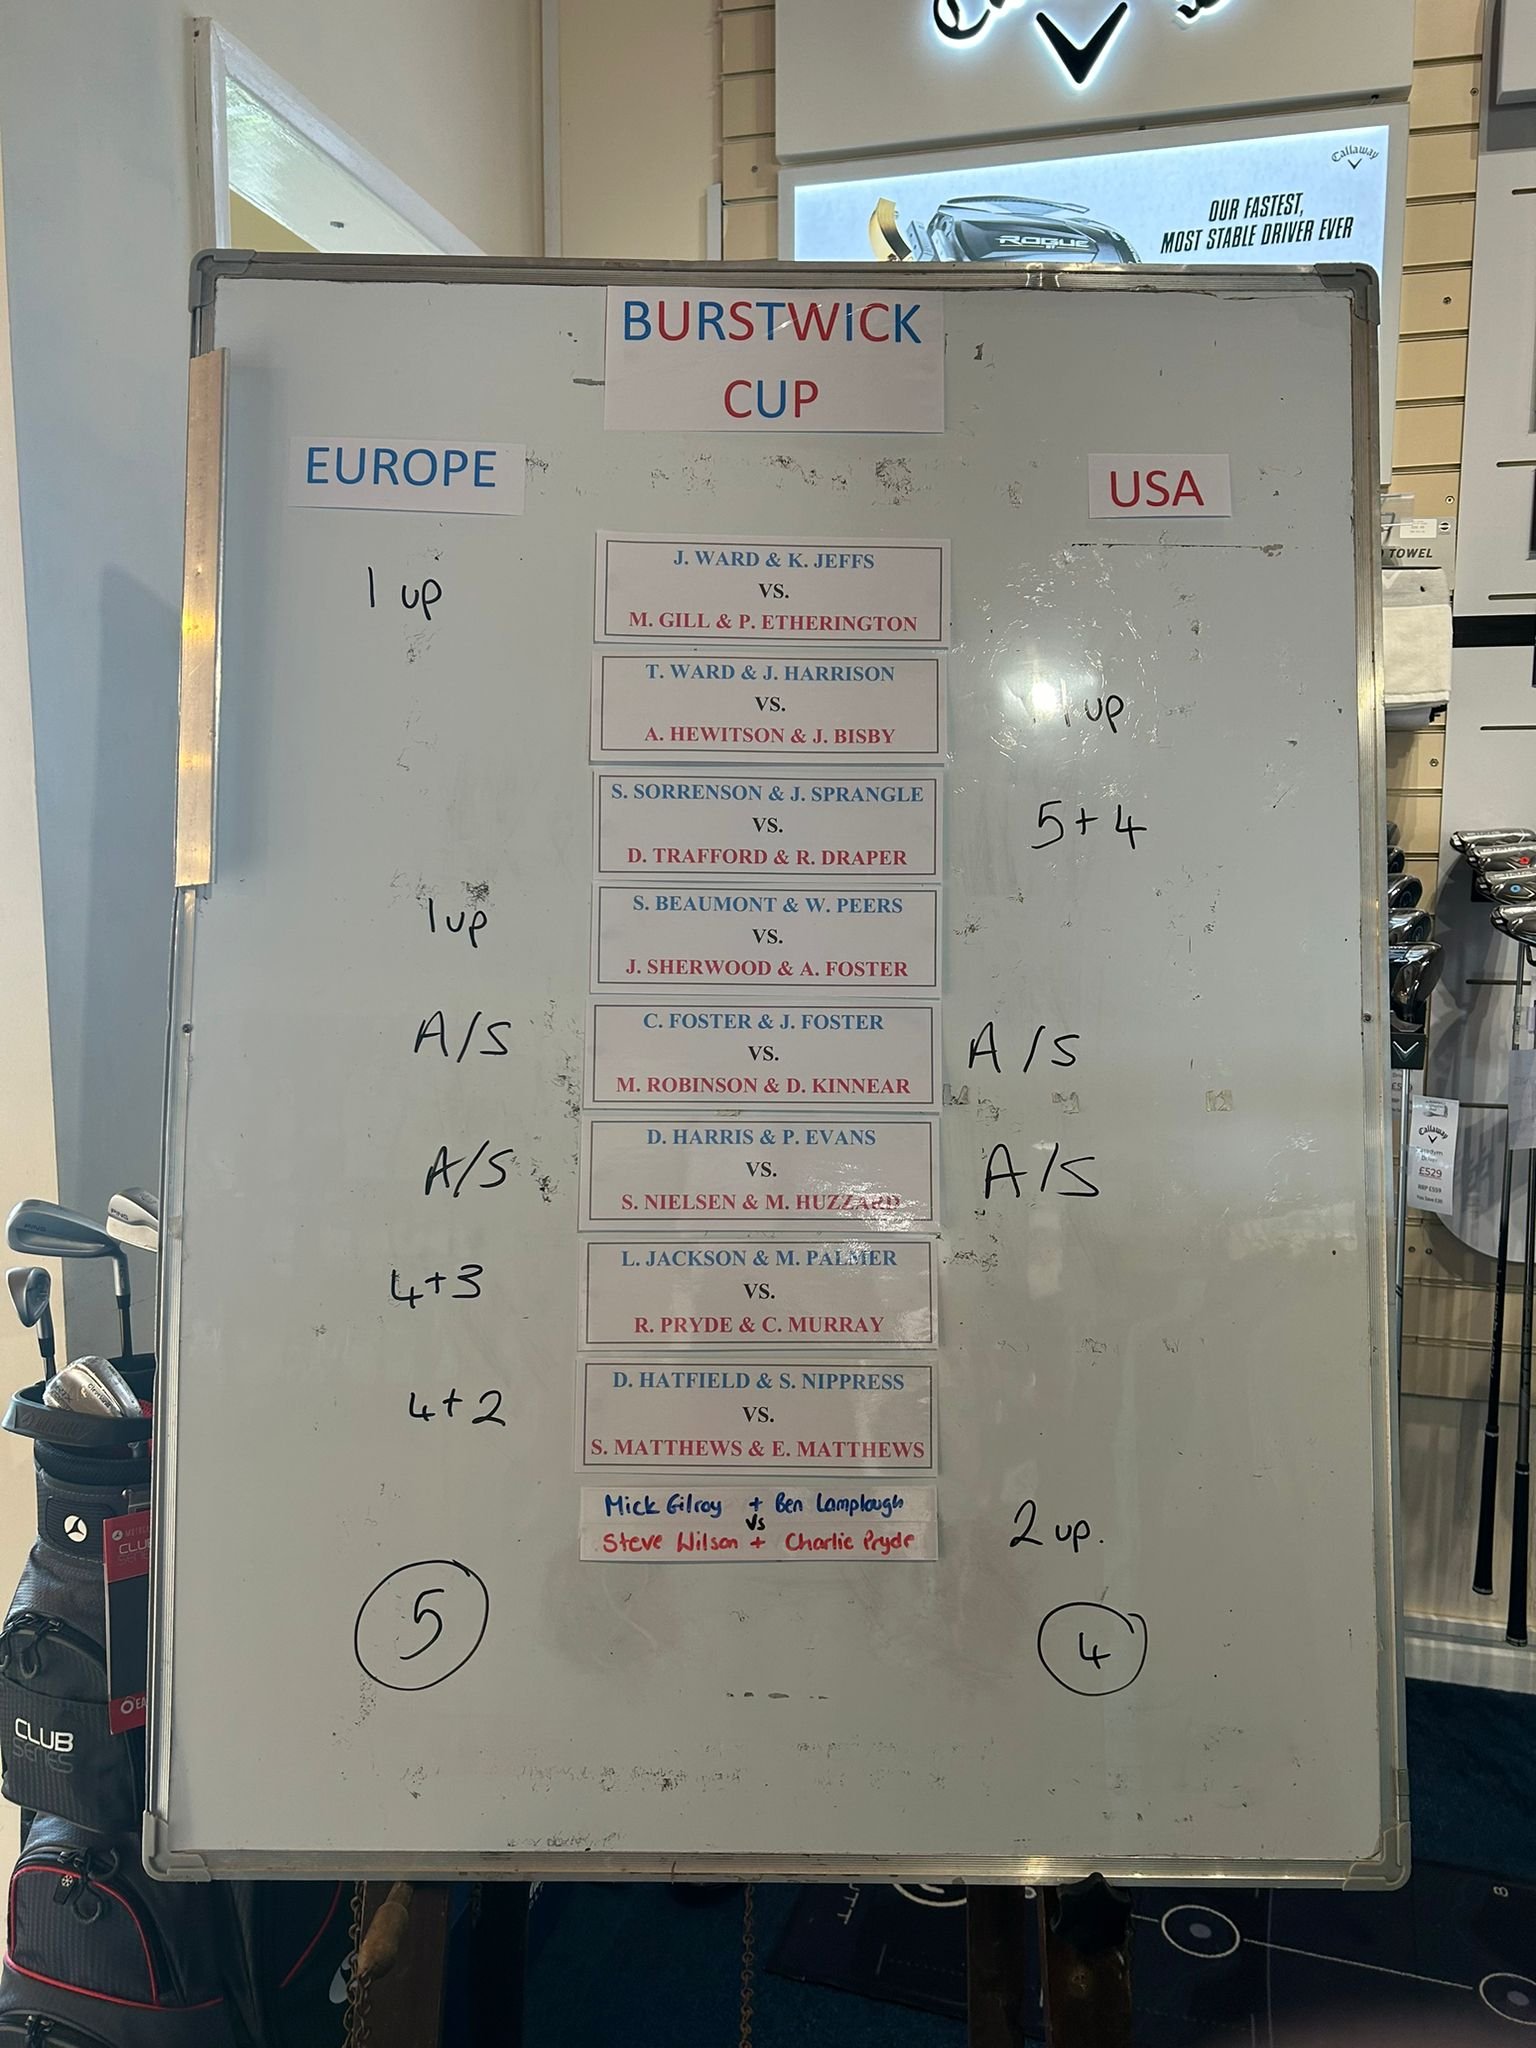 Callaway
OUR FASTEST,
MOST STABLE DRIVER EVER
ROGUE
BURSTWICK
CUP
EUROPE
USA
TOWEL
1 up
J. WARD & K. JEFFS
VS.
M. GILL & P. ETHERINGTON
T. WARD & J. HARRISON
VS.
A. HEWITSON & J. BISBY
1 up
S. SORRENSON & J. SPRANGLE
VS.
D. TRAFFORD & R. DRAPER
5+4
1 up
S. BEAUMONT & W. PEERS
VS.
J. SHERWOOD & A. FOSTER
A/S
C. FOSTER & J. FOSTER
VS.
M. ROBINSON & D. KINNEAR
A/S
A/S
D. HARRIS & P. EVANS
VS.
S. NIELSEN & M. HUZZARD
A/S
4+3
L. JACKSON & M. PALMER
VS.
R. PRYDE & C. MURRAY
4+2
D. HATFIELD & S. NIPPRESS
VS.
S. MATTHEWS & E. MATTHEWS
Mick Gilroy + Ben Lamplough
Vs
Steve Wilson + Charlie Pryde
2 up.
5
4
Callaway
Driver
£529
PING
PING
CLUB
SERIES
CLUB
SERIES